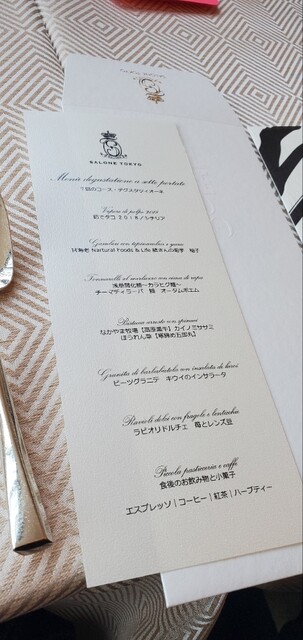 SALONE TOKYO
Menù degustazione a sette portate
7皿のコース・デグスタツィオーネ
Vapore di polpo 2018
蛸でタコ 2018/シチリア
Gamberi con topinambur e yuzu
海老 Nartural Foods & Life 菊芋 柚子
Tonnarelli al merluzzo con cima di rapa
浅草開化楼〜カラヒグ麺〜
チーマディラーパ 鱈 オータムポエム
Bistecca arrosto con spinaci
なかやま牧場【高原黒牛】カイノミササミ
ほうれん草【寒締め五郎丸】
Granita di barbabietola con insalata di kiwi
ビーツグラニテ キウイのインサラータ
Ravioli dolci con fragole e lenticchie
ラビオリドルチェ 苺とレンズ豆
Piccola pasticceria e caffè
食後のお飲み物と小菓子
エスプレッソ｜コーヒー｜紅茶｜ハーブティー